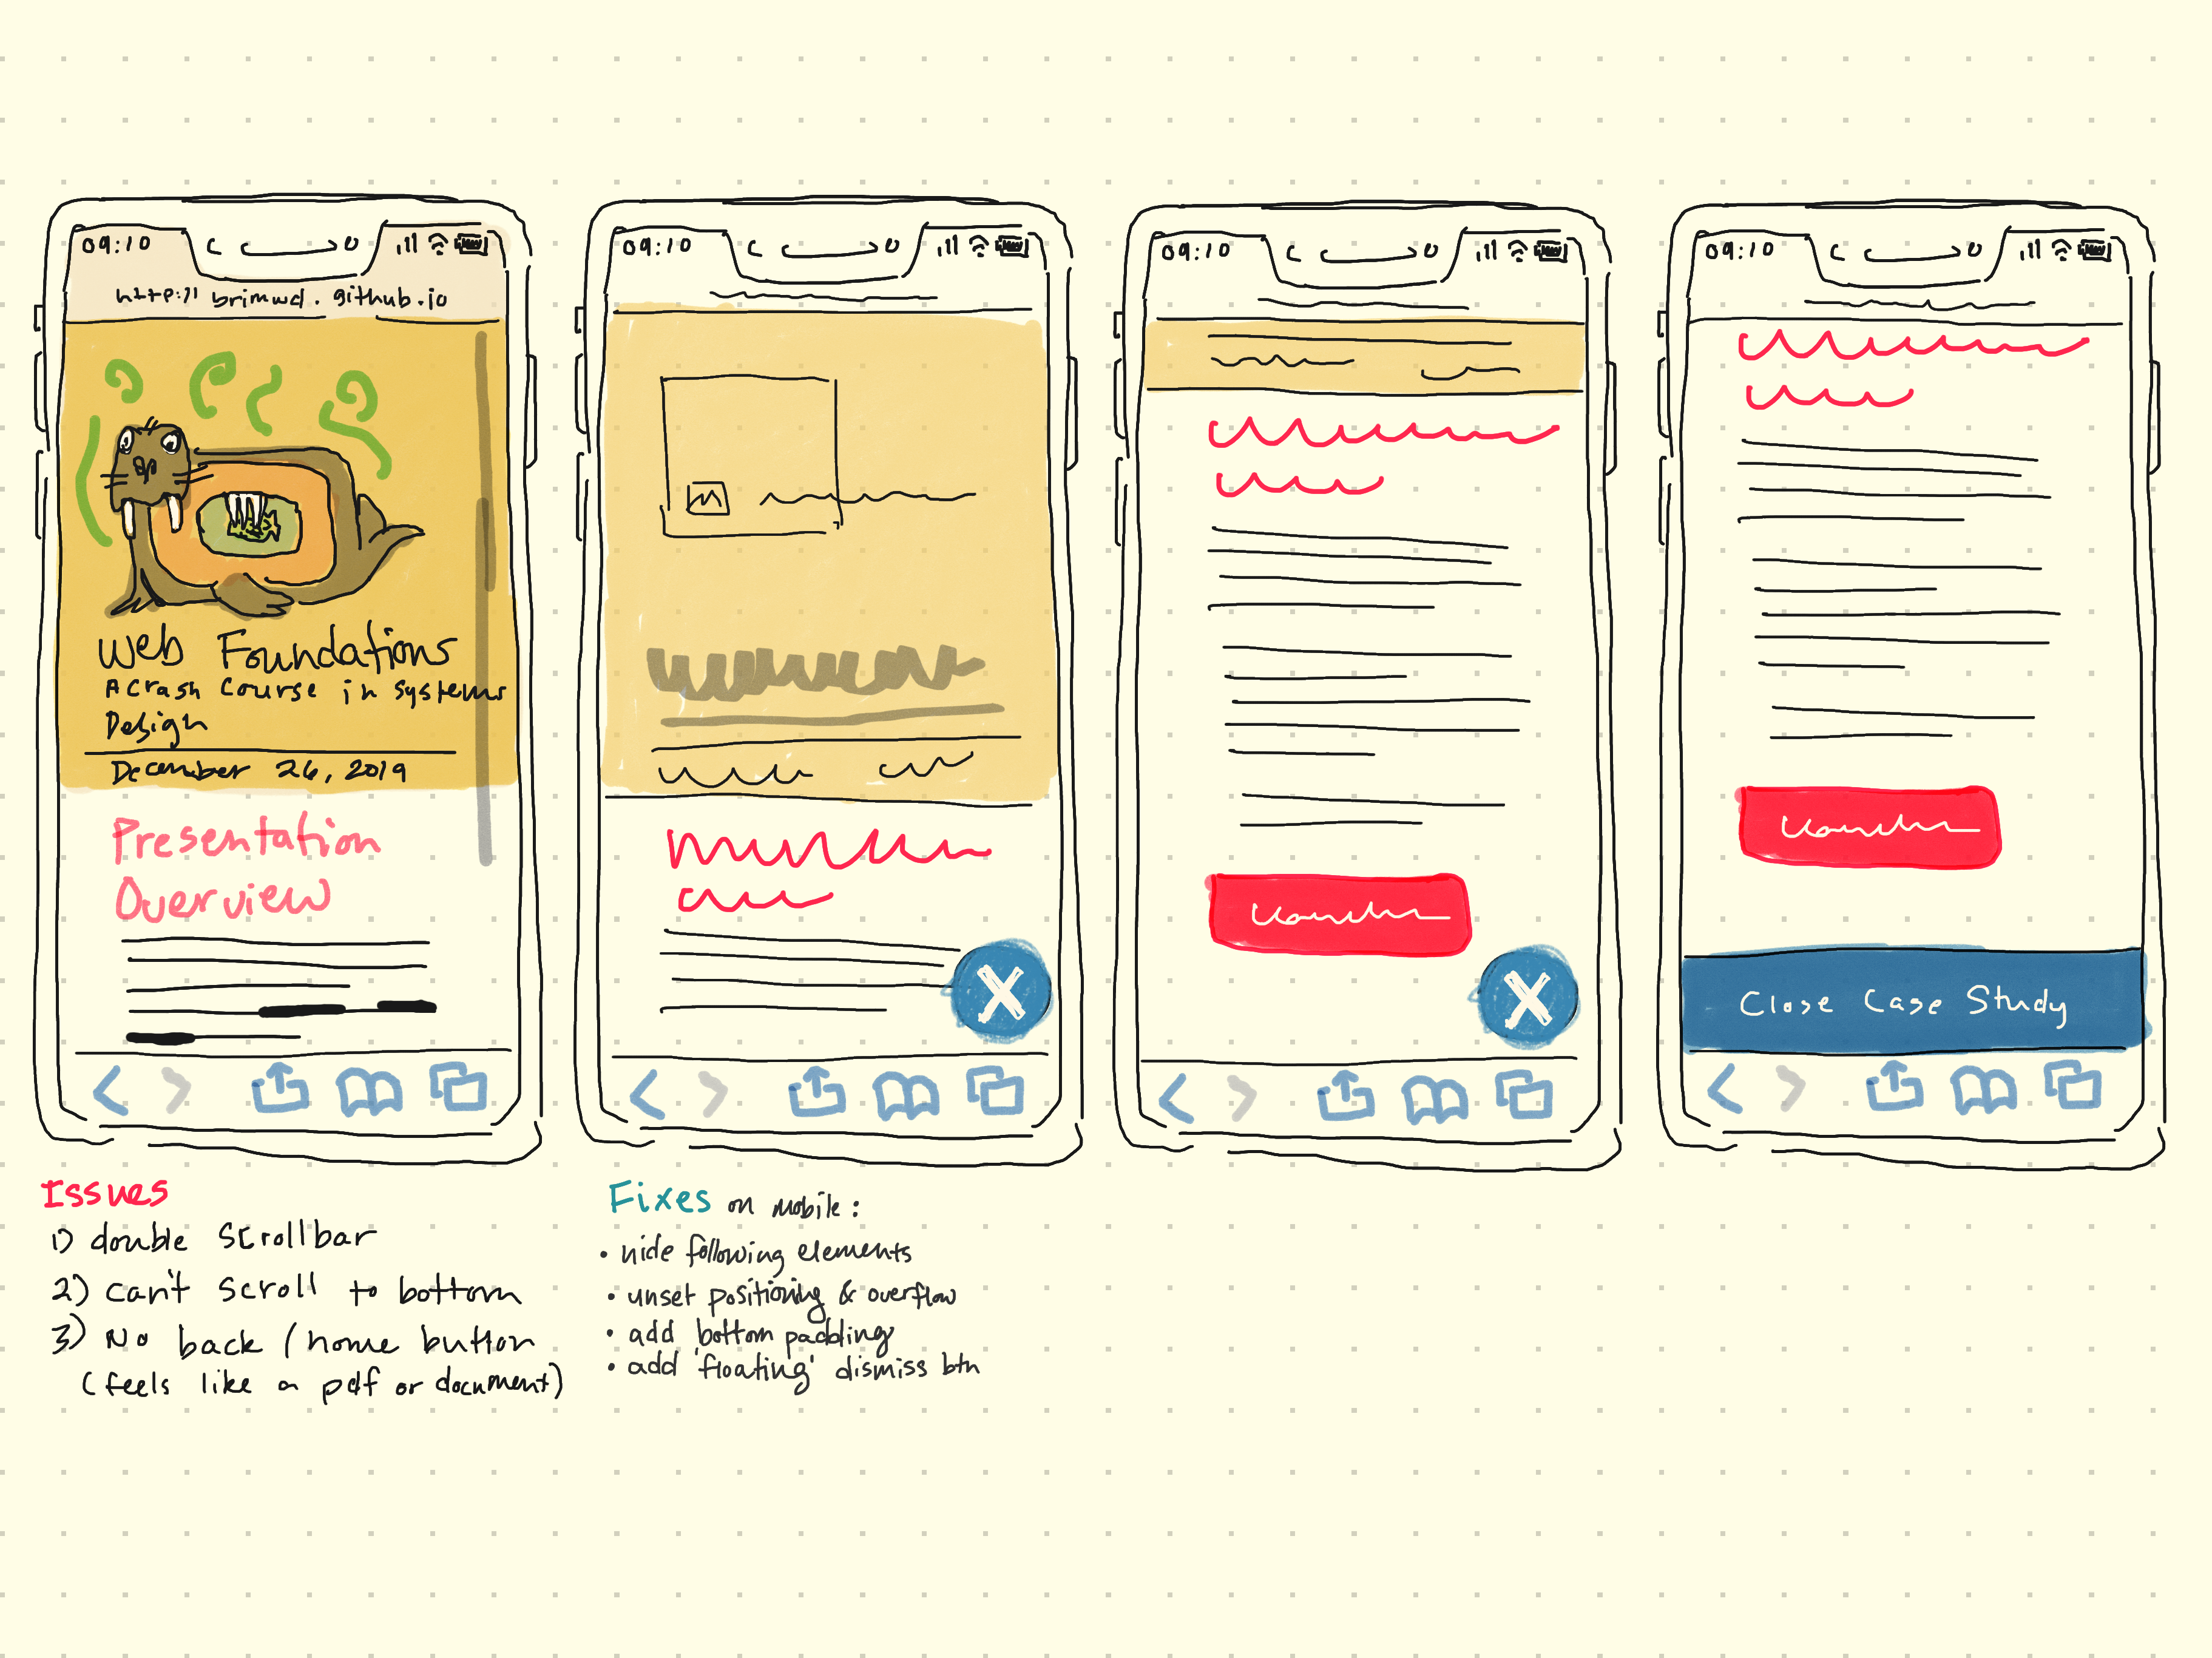 09:10
http:// brimwd.github.io
Web Foundations
A Crash Course in Systems
Design
December 26, 2019
Presentation
Overview
09:10
09:10
09:10
Close Case Study
Issues
1) double scrollbar
2) can't scroll to bottom
3) No back / home button
(feels like a pdf or document)
Fixes on mobile:
• hide following elements
• unset positioning & overflow
• add bottom padding
• add 'floating' dismiss btn